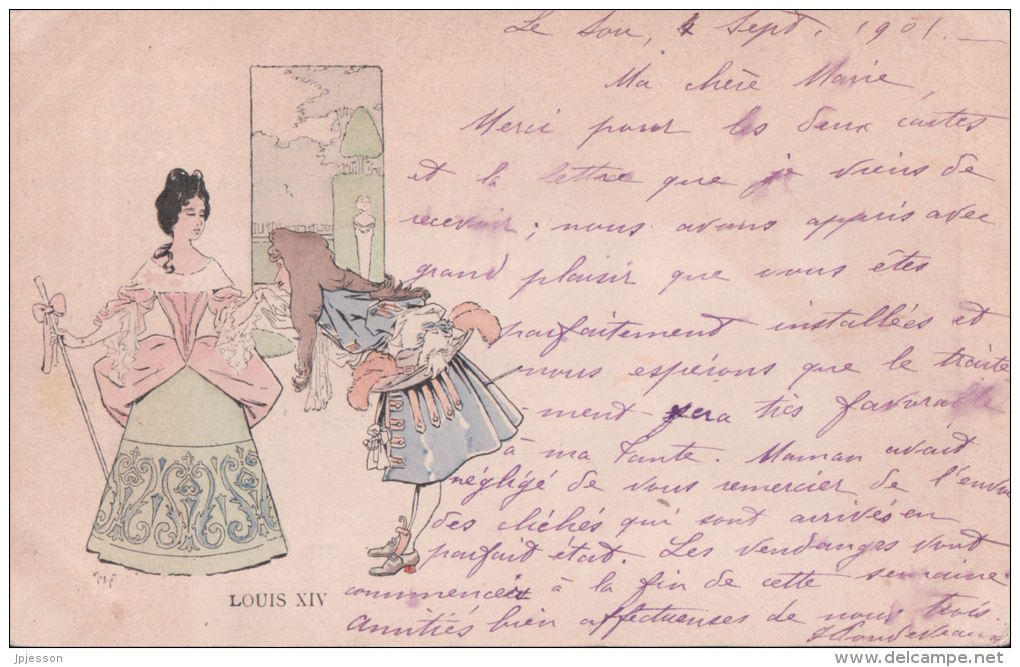 Le Sou, 4 Sept. 1901. _
Ma chère Marie,
Merci pour les deux cartes
et la lettre que je viens de
recevoir ; nous avons appris avec
grand plaisir que vous êtes
parfaitement installées et
nous espérons que le traite
-ment sera très favorable
à ma Tante. Maman avait
négligé de vous remercier de l'envoi
des clichés qui sont arrivés en
parfait état. Les vendanges vont
commencer à la fin de cette semaine
Amitiés bien affectueuses de nous trois.
LOUIS XIV
jpjesson
delcampe.net